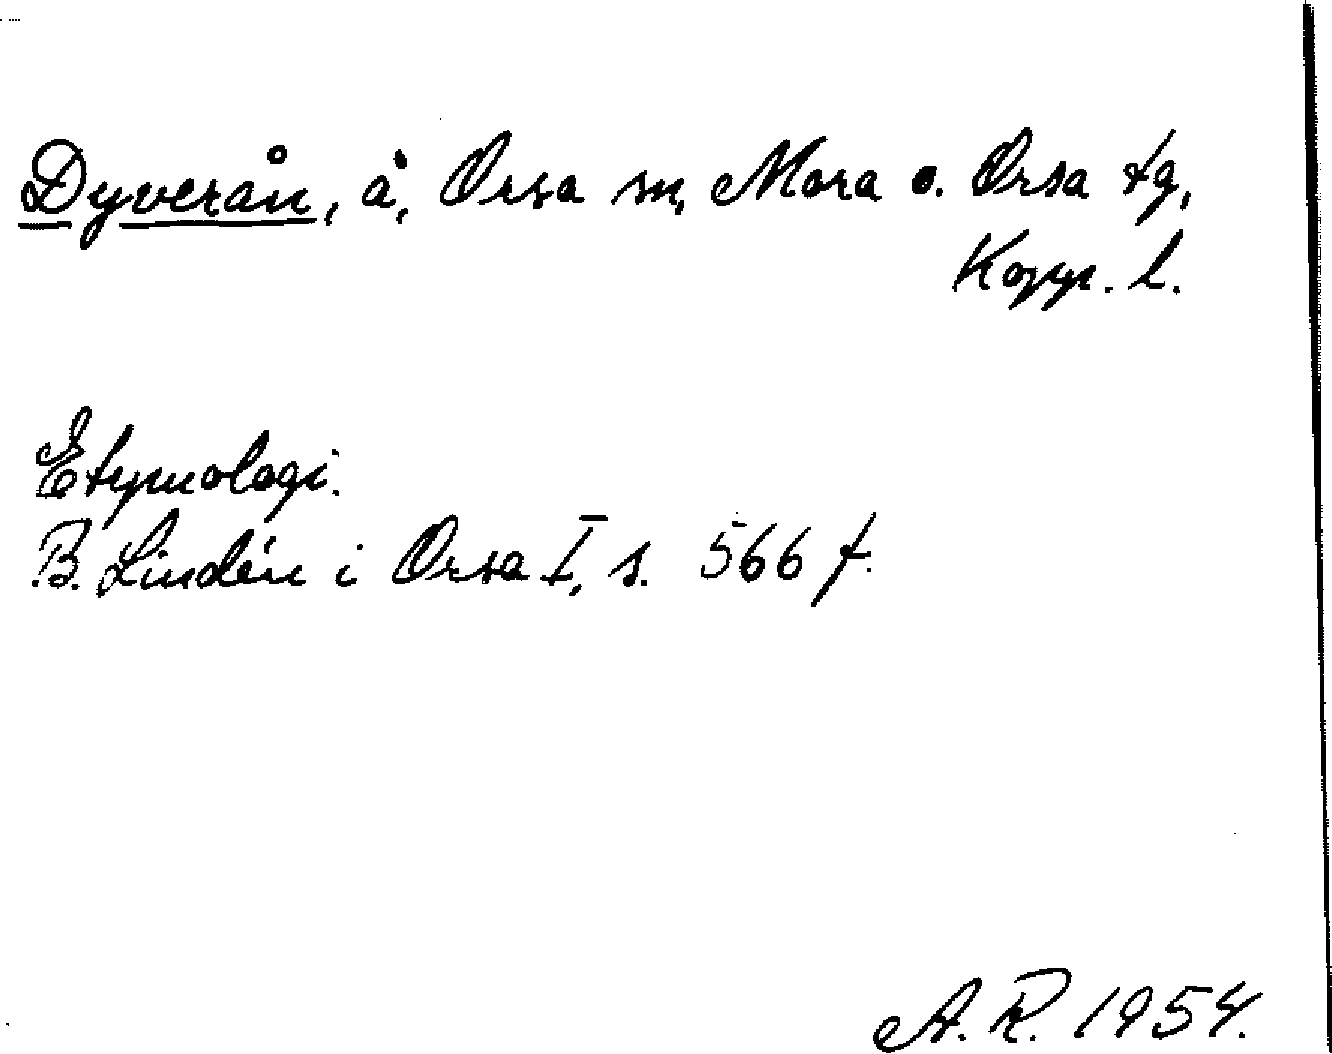 Dyverån, å, Orsa sn, Mora o. Orsa tg,
Kopp. l.
Etymologi.
B. Lindén i Orsa I, s. 566 f.
A. R. 1954.